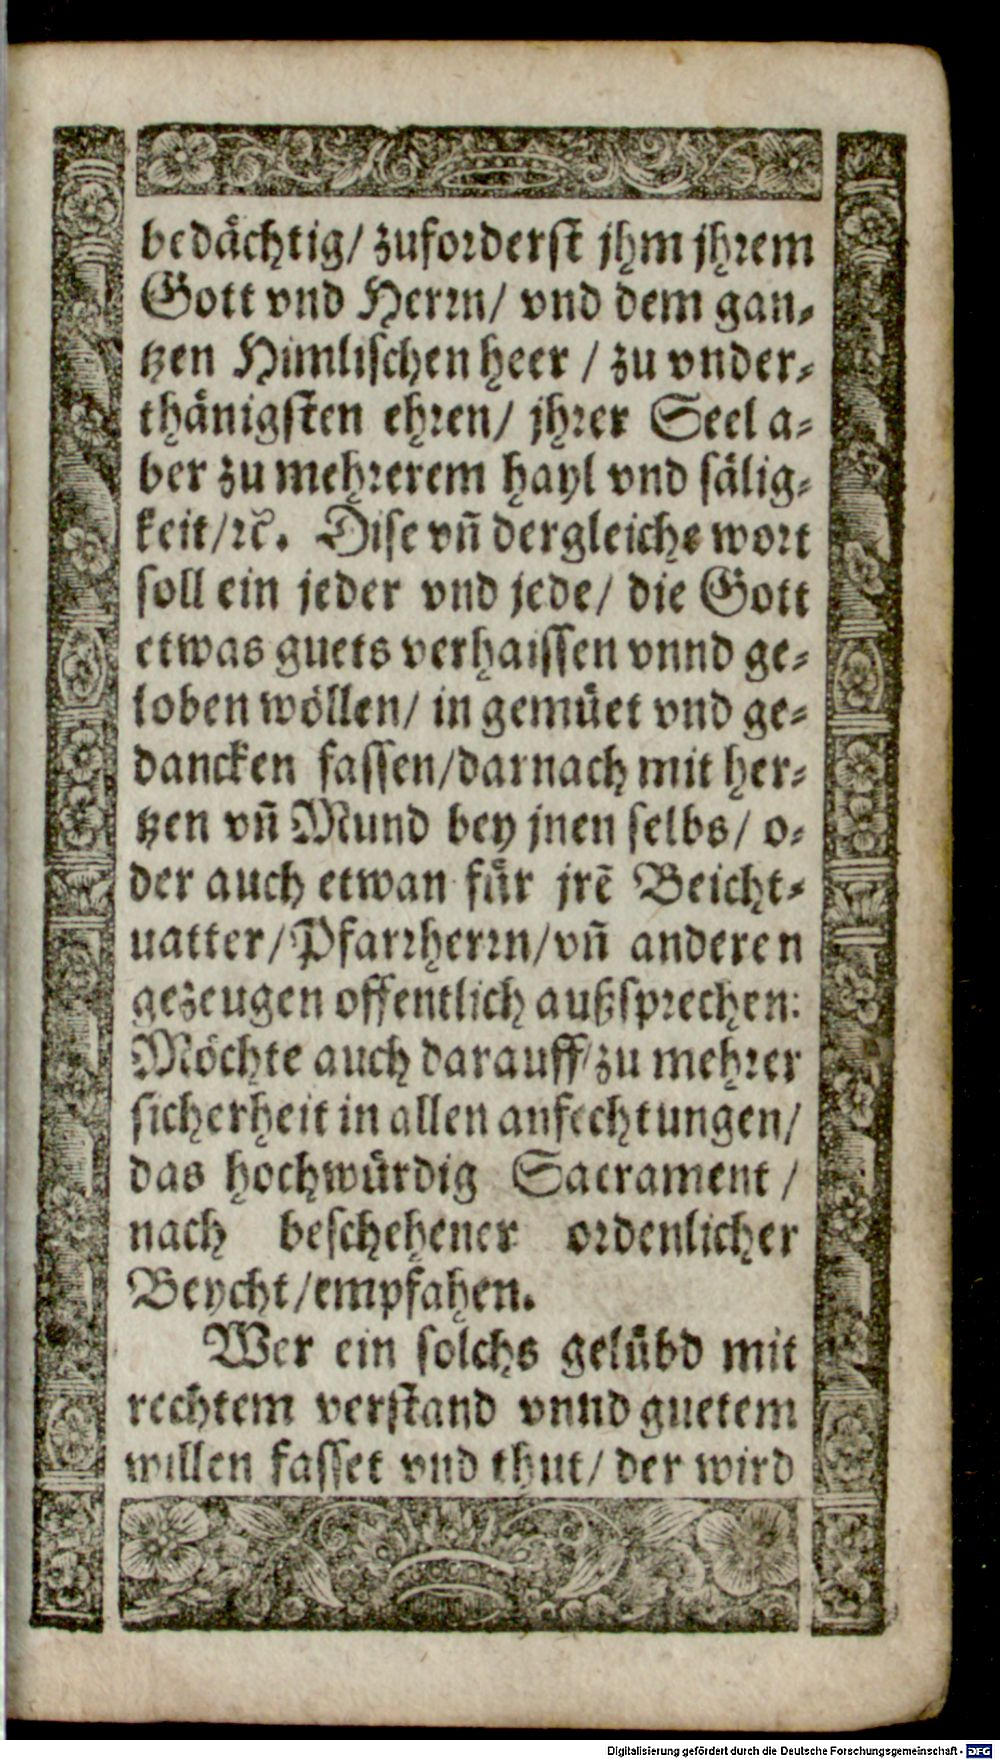 bedächtig/ zuforderst jhm jhrem
Gott vnd Herrn/ vnd dem gan⸗
tzen Himlischen heer / zu vnder⸗
thänigsten ehren/ jhrer Seel a⸗
ber zu mehrerem hayl vnd sälig⸗
keit/ꝛc̃. Dise vñ dergleiche wort
soll ein jeder vnd jede/ die Gott
etwas guets verhaissen vnnd ge⸗
loben wöllen/ in gemüet vnd ge⸗
dancken fassen/darnach mit her⸗
tzen vñ Mund bey jnen selbs/ o⸗
der auch etwan für jrẽ Beicht⸗
uatter/Pfarrherrn/vñ anderen
gezeugen offentlich außsprechen:
Möchte auch darauff/zu mehrer
sicherheit in allen anfechtungen/
das hochwürdig Sacrament /
nach beschehener ordenlicher
Beycht/empfahen.
Wer ein solchs gelübd mit
rechtem verstand vnnd guetem
willen fasset vnd thut/ der wird
Digitalisierung gefördert durch die Deutsche Forschungsgemeinschaft - DFG